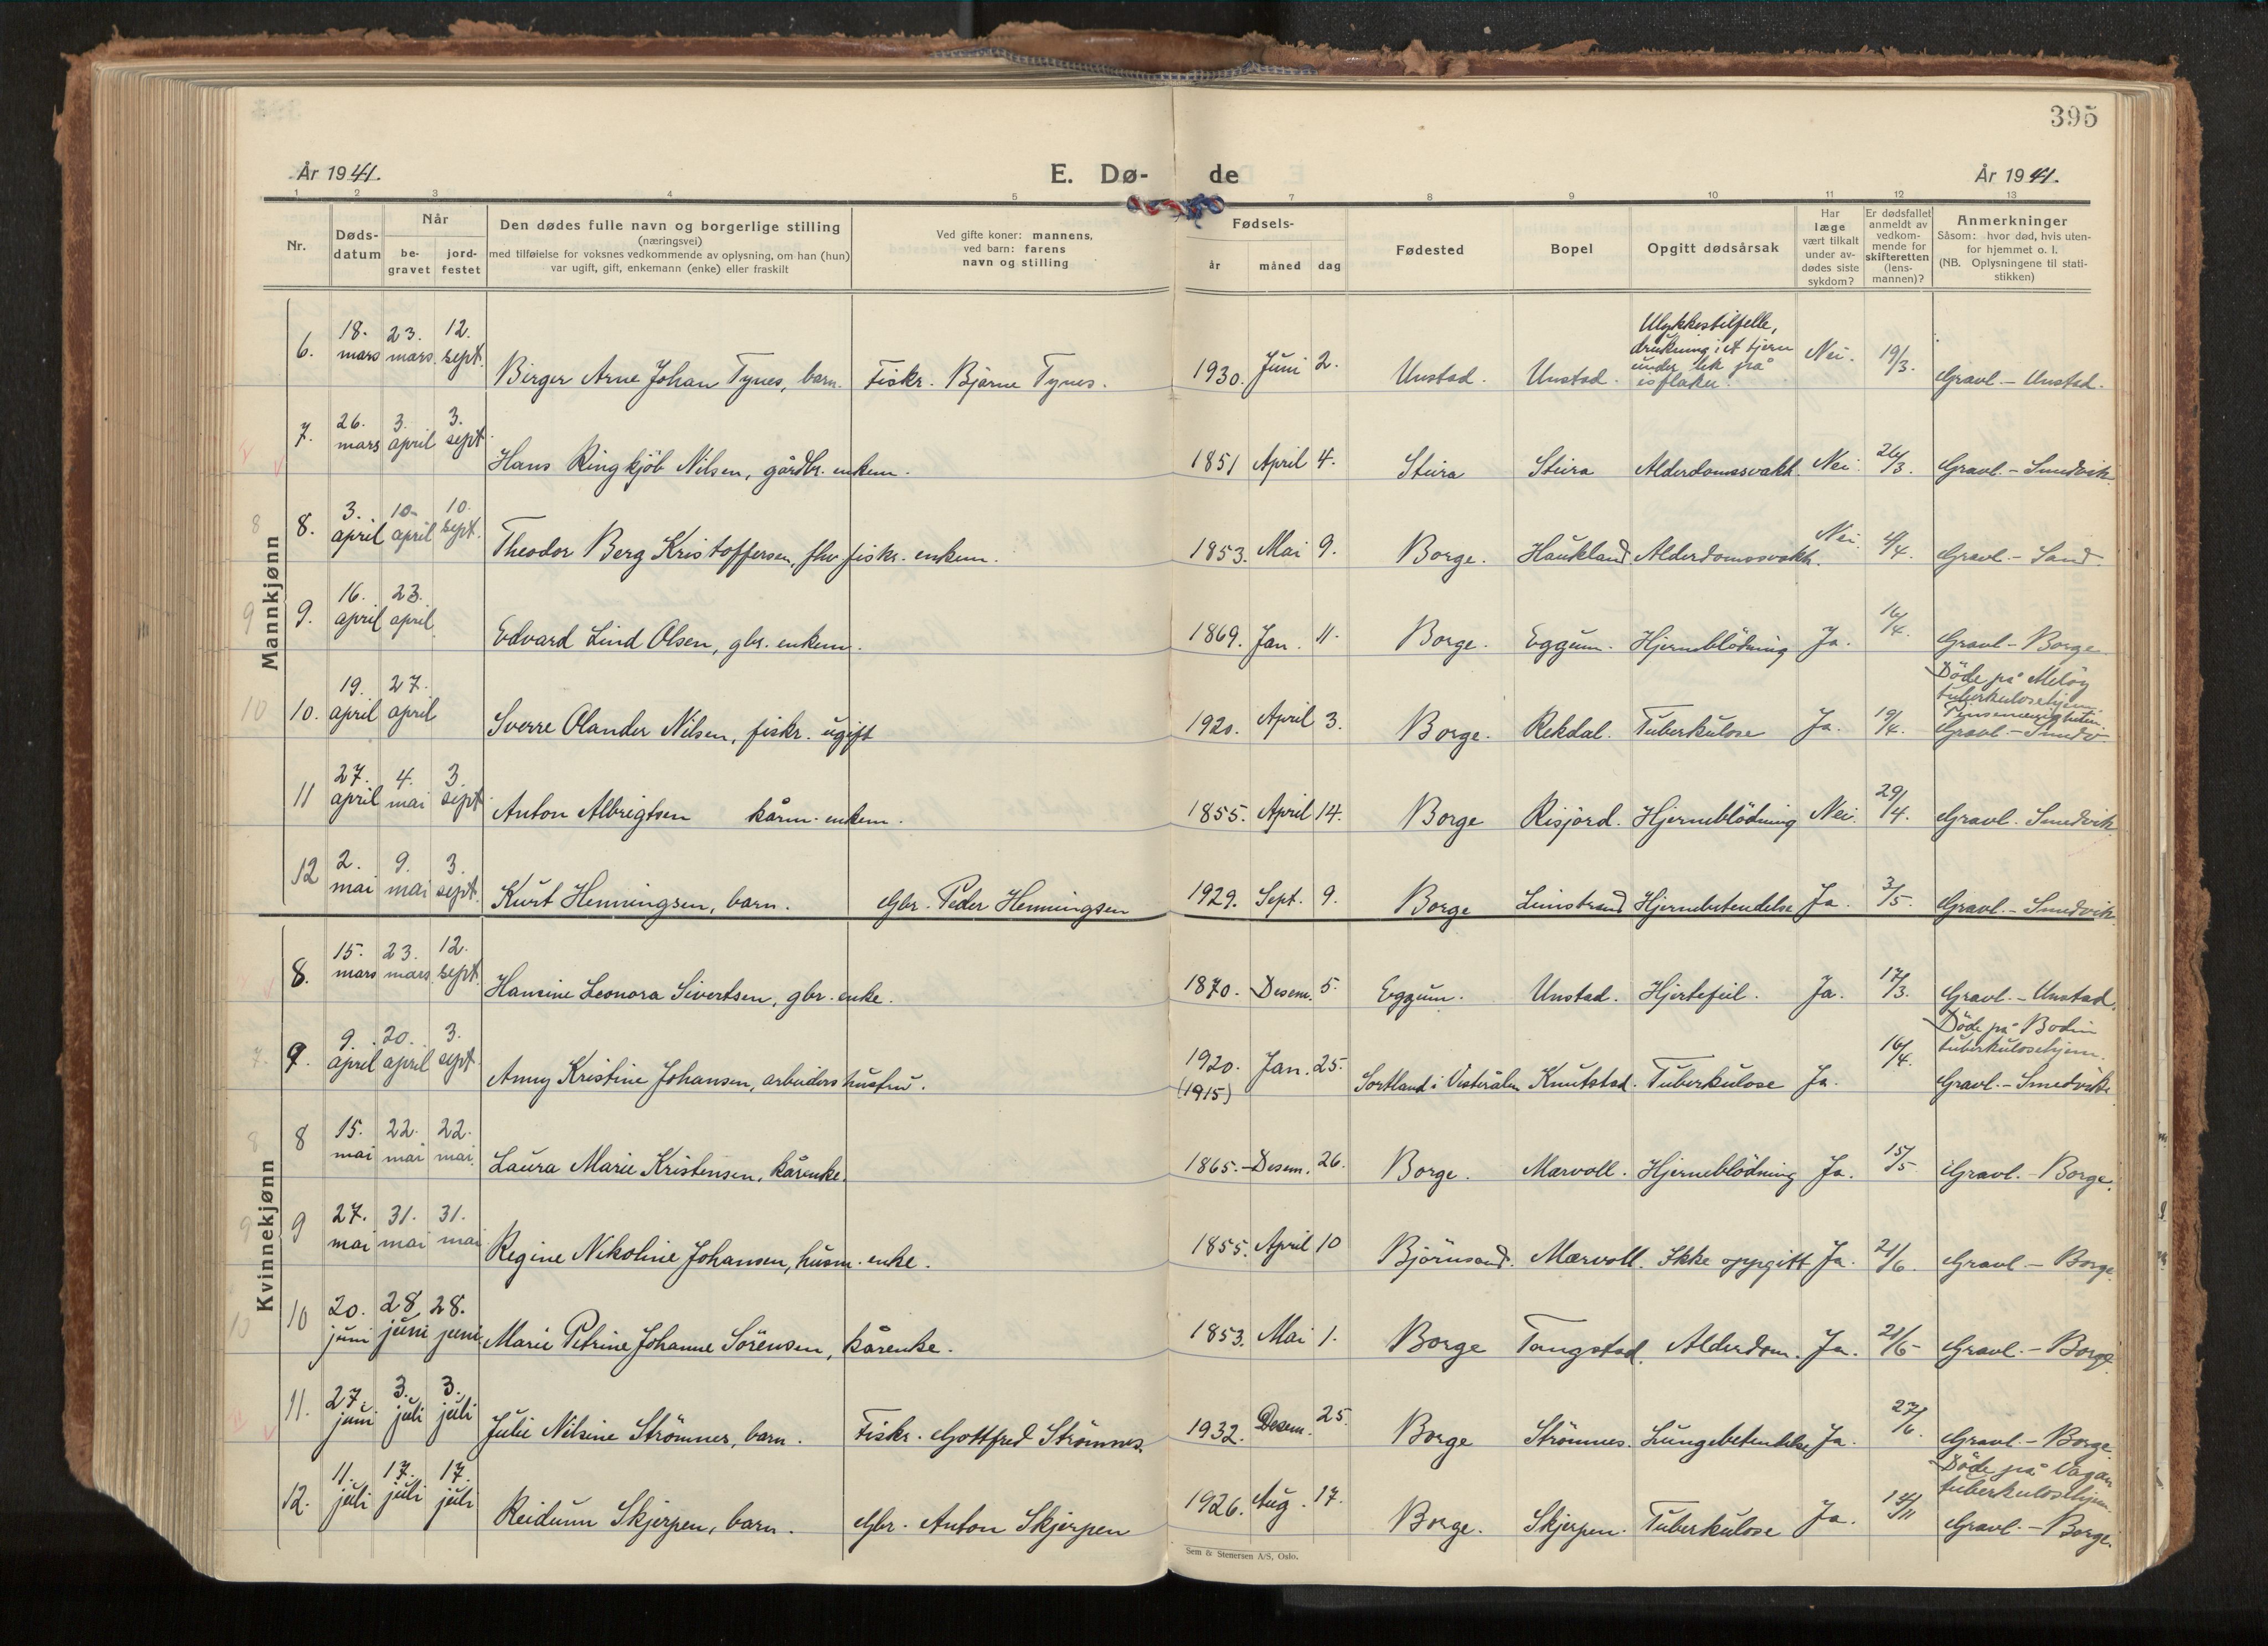 395
År 1941.
E. Dø- de
År 1941.
1 2 3 4 5 7 8 9 10 11 12 13
Nr.
Døds-
datum
Når
be-
gravet
jord-
festet
Den dødes fulle navn og borgerlige stilling
(næringsvei)
med tilføielse for voksnes vedkommende av oplysning, om han (hun)
var ugift, gift, enkemann (enke) eller fraskilt
Ved gifte koner: mannens,
ved barn: farens
navn og stilling
Fødsels-
år måned dag
Fødested
Bopel
Opgitt dødsårsak
Har
læge
vært tilkalt
under av-
dødes siste
sykdom?
Er dødsfallet
anmeldt av
vedkom-
mende for
skifteretten
(lens-
mannen)?
Anmerkninger
Såsom: hvor død, hvis uten-
for hjemmet o. l.
(NB. Oplysningene til stati-
stikken)
Mannkjønn
6. 18. mars 23. mars. 12. sept. Birger Arne Johan Tynes, barn. Fiskr. Bjarne Tynes. 1930. Juni 2. Unstad. Unstad. Ulykkestilfelle,
drukning i et tjern
under lek på
isflaker.
Nei. 19/3. Gravl. - Unstad.
7. 26. mars 3. april 3. sept. Hans Ringkjöb Nilsen, gårdbr. enkem. 1851 April 4. Steira Steira Alderdomssvakh. Nei. 26/3. Gravl. - Smedvik.
8. 3. april 10. april 10. sept. Theodor Berg Kristoffersen, fhv. fiskr. enkem. 1853. Mai 9. Borge. Haukland. Alderdomssvakh. Nei. 4/4. Gravl. - Sand.
9. 16. april 23. april. Edvard Lind Olsen, gbr. enkem. 1869. Jan. 11. Borge. Eggum. Hjerneblödning Ja. 16/4. Gravl. - Borge
10. 19. april 27. april Sverre Olander Nilsen, fiskr. ugift 1920. April 3. Borge. Rekdal. Tuberkulose Ja. 19/4. Döde på Melöy
tuberkulosehjem.
Gravl. - Smedv.
11 27. april 4. mai 3. sept. Anton Albrigtsen kårm. enkem. 1855. April 14. Borge Risjord. Hjerneblödning Nei. 29/4. Gravl. Smedvik
12 2. mai 9. mai 3. sept. Kurt Henningsen, barn. Gbr. Peder Henningsen 1929. Sept. 9. Borge Limstrand Hjernebetendelse Ja. 3/5. Gravl. - Smedvik
Kvinnekjønn
8. 15. mars 23. mars. 12. sept. Hansine Leonora Sivertsen, gbr. enke. 1870. Desem. 5. Eggum. Unstad. Hjertefeil. Ja. 17/3. Gravl. - Unstad.
7. 9. april 20. april 3. sept. Anny Kristine Johansen, arbeiders hustru. 1920. (1915) Jan. 25. Sortland i Vesterålen Knutstad. Tuberkulose Ja. 16/4. Döde på Bodin
tuberkulosehjem.
Gravl. - Smedvik
8 15. mai 22. mai 22. mai. Laura Marie Kristensen, kårenke. 1865. Desem. 26. Borge. Mærvoll. Hjerneblödning Ja. 15/5 Gravl. - Borge.
9 27. mai 31. mai 31. mai Regine Nikoline Johansen, husm. enke. 1855. April 10 Björnsand. Mærvoll. Ikke oppgitt Ja. 21/6. Gravl. - Borge.
10 20. juni 28 juni 28. juni Marie Petrine Johanne Sörensen, kårenke. 1853. Mai 1. Borge Tangstad. Alderdom. Ja. 21/6 Gravl. - Borge
11. 27. juni 3. juli 3. juli Julie Nilsine Strömnes, barn. Fiskr. Gottfred Strömnes. 1932. Desem. 25. Borge Strömnes. Lungebetendelse Ja. 27/6. Gravl. - Borge
12. 11. juli 17. juli 17. juli Reidunn Skjerpen, barn. Gbr. Anton Skjerpen 1926. Aug. 17. Borge. Skjerpen. Tuberkulose Ja. Döde på Vågan
tuberkulosehjem.
Gravl. - Borge.
Sem & Stenersen A/S, Oslo.